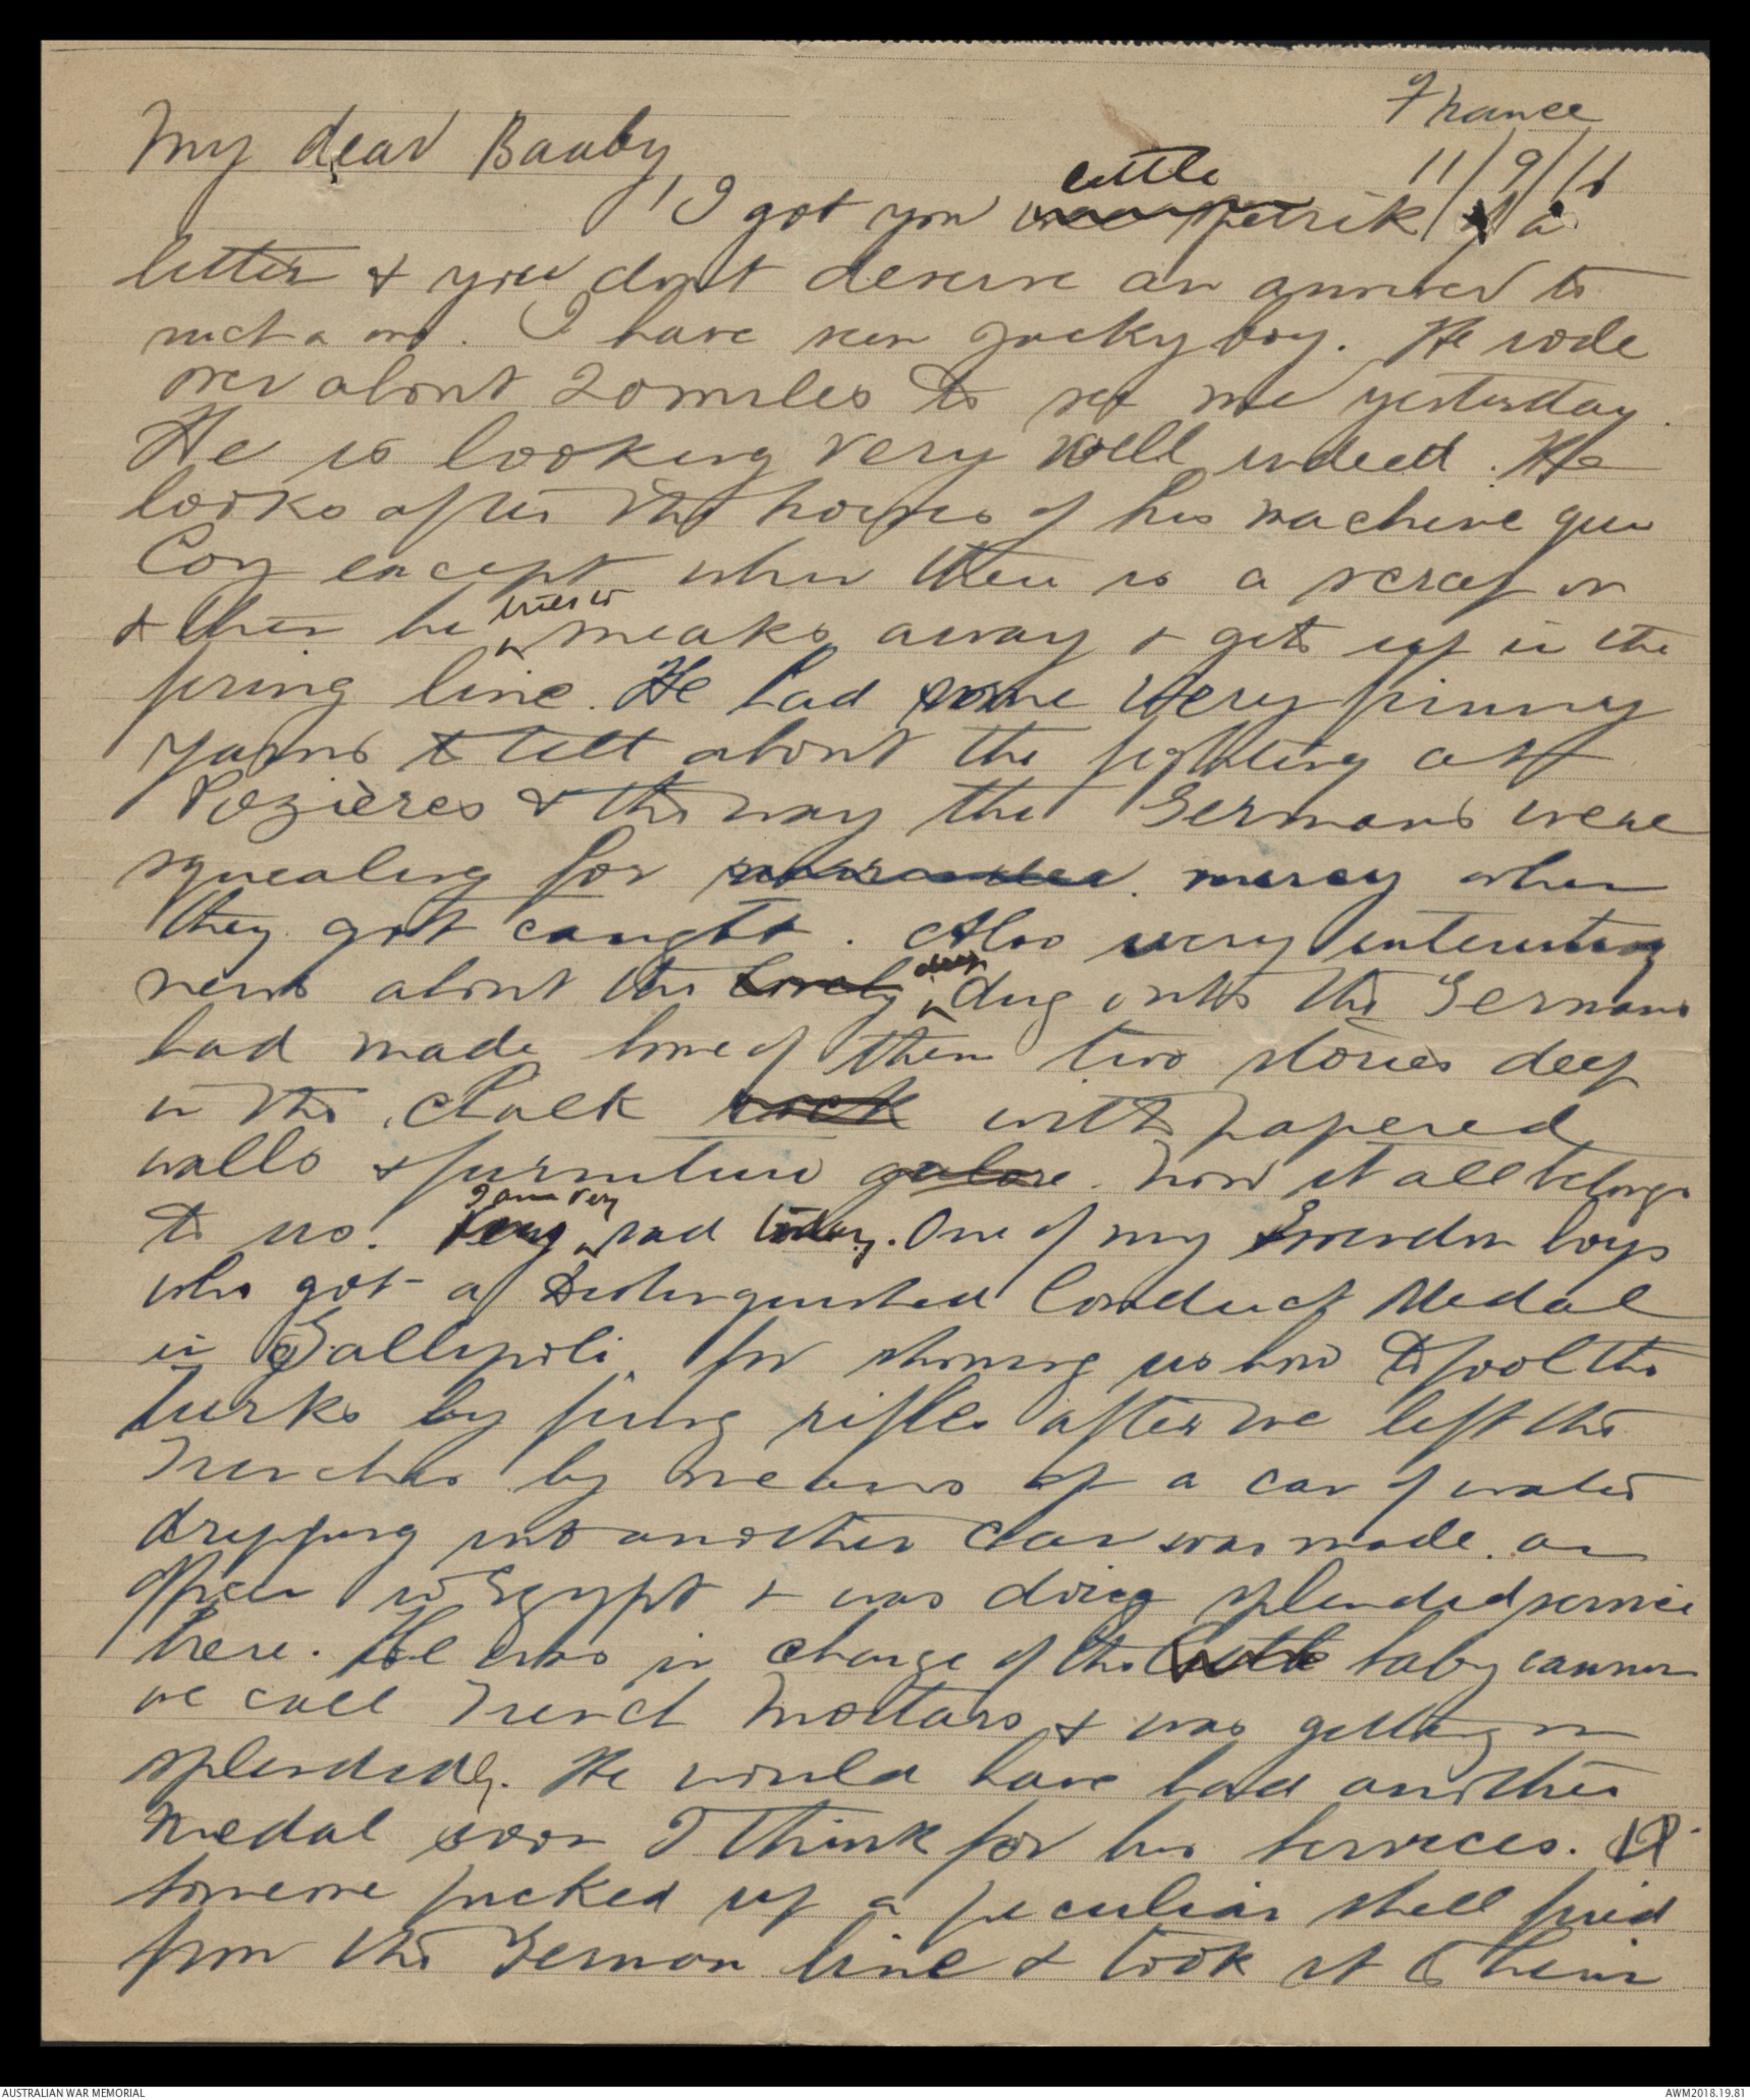 France
11/9/16
My dear Baaby
little
I got you
letter & you dont deserve an answer to
such a one. I have seen Jacky boy. He rode
over about 20 miles to see me yesterday.
He is looking very well indeed. He
looks after the horses of his machine gun
Coy except when there is a scrap on
tries to
& then he sneaks away & gets up in the
firing line. He had some very funny
yarns to tell about the fighting at
Pozières & the way the Germans were
squealing for surrender. mercy when
they got caught. Also very interesting
deep
news about the lovely dug outs the Germans
had made some of them two stories deep
in the chalk rock with papered
walls & furniture galore. Now it all belongs
I am very
to us. Very sad today. One of my Essendon boys
who got a Distinguished Conduct Medal
in Gallipoli for showing us how to fool the
Turks by firing rifles after we left the
Trenches by means of a can of water
dripping into another can was made an
officer in Egypt & was doing splendid service
here. He was in charge of the little baby cannon
we call Trench Mortars & was getting on
splendidly. He would have had another
medal soon I think for his services.
Someone picked up a peculiar shell fired
from the German line & took it to
AUSTRALIAN WAR MEMORIAL
AWM2018.19.81